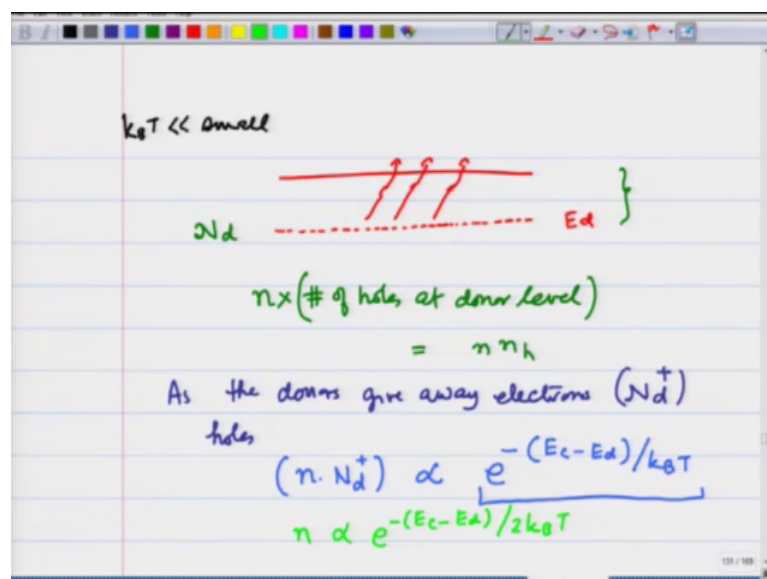 B I
k_BT << small
N_d E_d
n × (# of holes at donor level)
= n n_h
As the donors give away electrons (N_d^+)
holes
(n. N_d^+) ∝ e^{-(E_c-E_d)/k_BT}
n ∝ e^{-(E_c-E_d)/2k_BT}
131 / 169